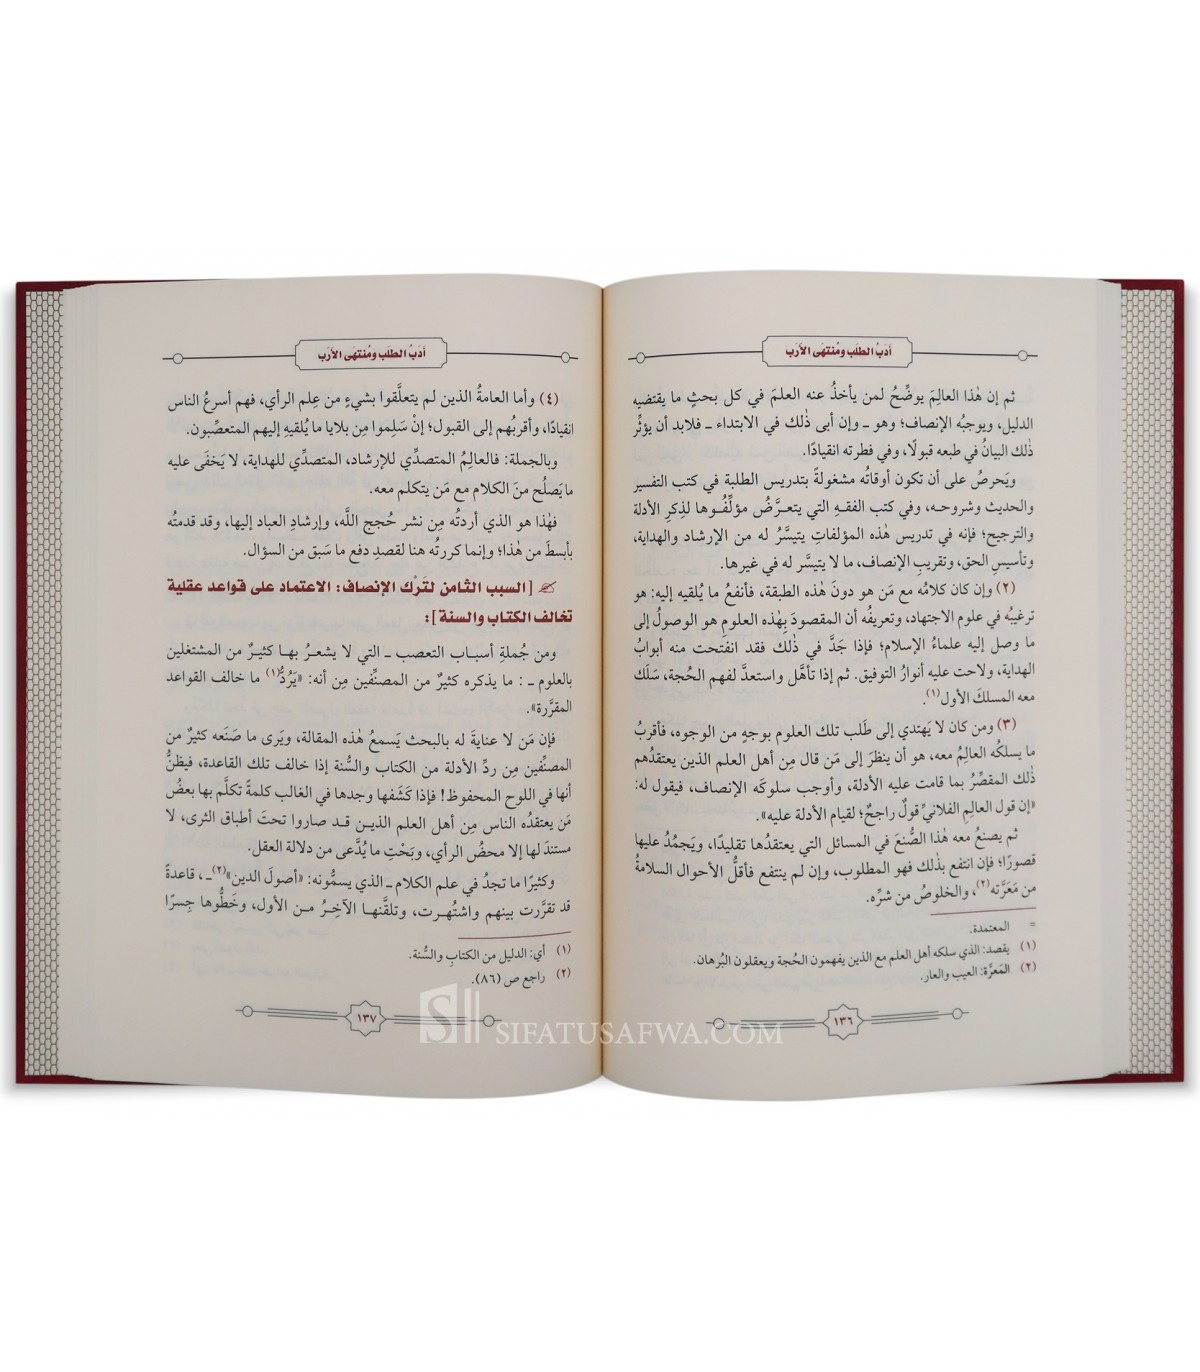 أدَبُ الطلَب ومُنتهَى الأرَب
ثم إن هٰذا العالِمَ يوضِّحُ لمن يأخذُ عنه العلمَ في كل بحثٍ ما يقتضيه
الدليل، ويوجبُه الإنصاف؛ وهو ــ وإن أبى ذٰلك في الابتداء ــ فلابد أن يؤثِّر
ذٰلك البيانُ في طبعه قبولًا، وفي فطرته انقيادًا.
ويَحرصُ على أن تكون أوقاتُه مشغولةً بتدريس الطلبة في كتب التفسير
والحديث وشروحه، وفي كتب الفقهِ التي يتعرَّضُ مؤلِّفُوها لذِكرِ الأدلة
والترجيح؛ فإنه في تدريس هٰذه المؤلفاتِ يتيسَّرُ له من الإرشاد والهداية،
وتأسيسِ الحق، وتقريبِ الإنصاف، ما لا يتيسَّر له في غيرها.
(٢) وإن كان كلامُه مع مَن هو دونَ هٰذه الطبقة، فأنفعُ ما يُلقيه إليه: هو
ترغيبُه في علوم الاجتهاد، وتعريفُه أن المقصودَ بِهٰذه العلومِ هو الوصولُ إلى
ما وصل إليه علماءُ الإسلام؛ فإذا جَدَّ في ذٰلك فقد انفتَحت منه أبوابُ
الهداية، ولاحت عليه أنوارُ التوفيق. ثم إذا تأهَّل واستعدَّ لفهم الحُجة، سَلَك
معه المسلكَ الأول(١).
(٣) ومن كان لا يَهتدي إلى طَلب تلك العلوم بوجهٍ من الوجوه، فأقربُ
ما يسلكُه العالِمُ معه، هو أن ينظرَ إلى مَن قال مِن أهل العلم الذين يعتقدُهم
ذٰلك المقصِّرُ بما قامت عليه الأدلة، وأوجب سلوكَه الإنصاف، فيقول له:
«إن قول العالِمِ الفلانيِّ قولٌ راجحٌ؛ لقيام الأدلة عليه».
ثم يصنعُ معه هٰذا الصُّنعَ في المسائل التي يعتقدُها تقليدًا، ويَجمُدُ عليها
قصورًا؛ فإن انتفع بذٰلك فهو المطلوب، وإن لم ينتفع فأقلُّ الأحوال السلامةُ
من مَعَرَّته(٢)، والخلوصُ من شرِّه.
= المعتمدة.
(١) يقصد: الذي سلكه أهل العلم مع الذين يفهمون الحُجة ويعقلون البُرهان.
(٢) المَعرَّة: العيب والعار.
١٣٦
أدَبُ الطلَب ومُنتهَى الأرَب
(٤) وأما العامةُ الذين لم يتعلَّقوا بشيءٍ من عِلم الرأي، فهم أسرعُ الناس
انقيادًا، وأقربُهم إلى القبول؛ إنْ سَلِموا مِن بلايا ما يُلقيهِ إليهم المتعصِّبون.
وبالجملة: فالعالِمُ المتصدِّي للإرشاد، المتصدِّي للهداية، لا يَخفَى عليه
ما يَصلُح منَ الكلام مع مَن يتكلم معه.
فهٰذا هو الذي أردتُه مِن نشر حُججِ اللَّه، وإرشادِ العباد إليها، وقد قدمتُه
بأبسطَ من هٰذا؛ وإنما كررتُه هنا لقصدِ دفع ما سَبق من السؤال.
[السبب الثامن لتَرْك الإنصاف: الاعتماد على قواعد عقلية
تخالف الكتاب والسنة]:
ومن جُملةِ أسباب التعصب ــ التي لا يشعرُ بها كثيرٌ من المشتغلين
بالعلوم ــ : ما يذكره كثيرٌ من المصنِّفين مِن أنه: «يَرُدُّ(١) ما خالف القواعد
المقرَّرة».
فإن مَن لا عنايةَ له بالبحث يَسمعُ هٰذه المقالة، ويَرى ما صَنَعه كثيرٌ من
المصنِّفين مِن ردِّ الأدلة من الكتاب والسُّنة إذا خالف تلك القاعدة، فيظنُّ
أنها في اللوح المحفوظ! فإذا كَشَفها وجدها في الغالب كلمةً تكلَّم بها بعضُ
مَن يعتقدُه الناس مِن أهل العلم الذيـن قـد صاروا تحتَ أطباق الثرى، لا
مستندَ لها إلا محضُ الرأي، وبَحْتِ ما يُدَّعى من دلالة العقل.
وكثيرًا ما تجدُ في علم الكلام ــ الذي يسمُّونه: «أصولَ الدين»(٢) ــ، قاعدةً
قد تقرَّرت بينهم واشتُهرت، وتلقَّنها الآخِرُ مـن الأول، وخَطُّوها جِسرًا
(١) أي: الدليل من الكتابِ والسُّنة.
(٢) راجع ص (٨٦).
١٣٧
SIFATUSAFWA.COM